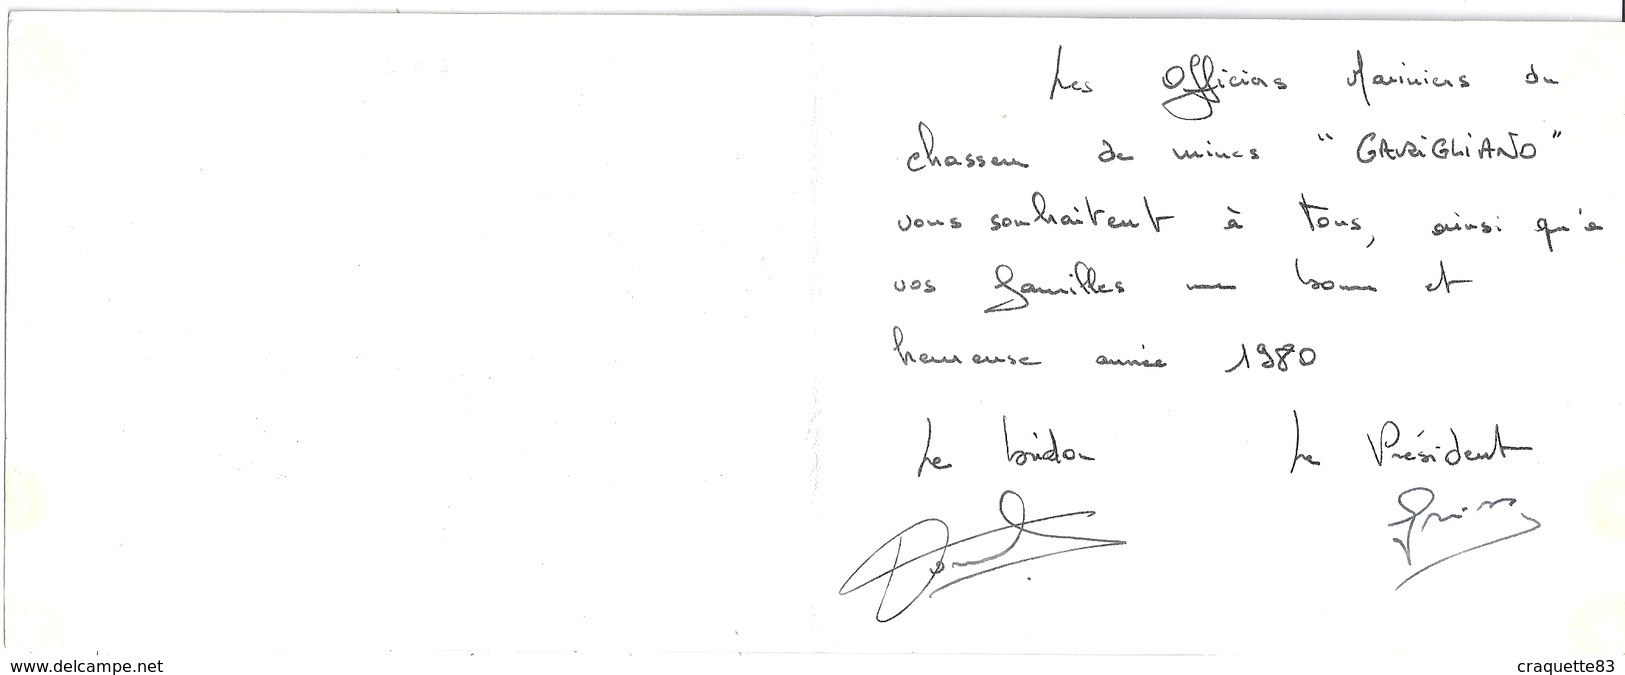 Les Officiers Mariniers du
chasseur de mines "GARIGLIANO"
vous souhaitent à tous, ainsi qu'à
vos familles une bonne et
heureuse année 1980
Le bidou Le Président
www.delcampe.net craquette83